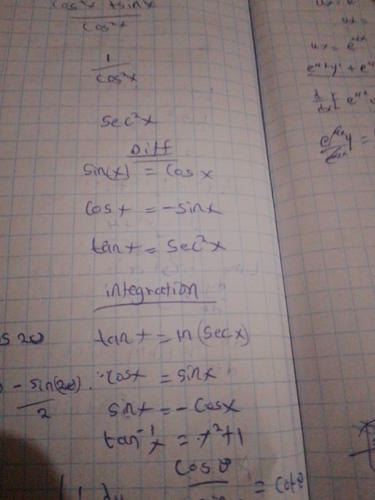 cos²x + sin²x
cos²x
1
cos²x
sec²x
Diff
sin(x) = cos x
cos x = -sinx
tan x = sec²x
integration
tan x = ln(secx)
cosx = sinx
sinx = -cosx
tan⁻¹x = x²+1
cosθ
= cotθ
s 2θ
-sin(2θ)
2
ux = e⁴ˣ